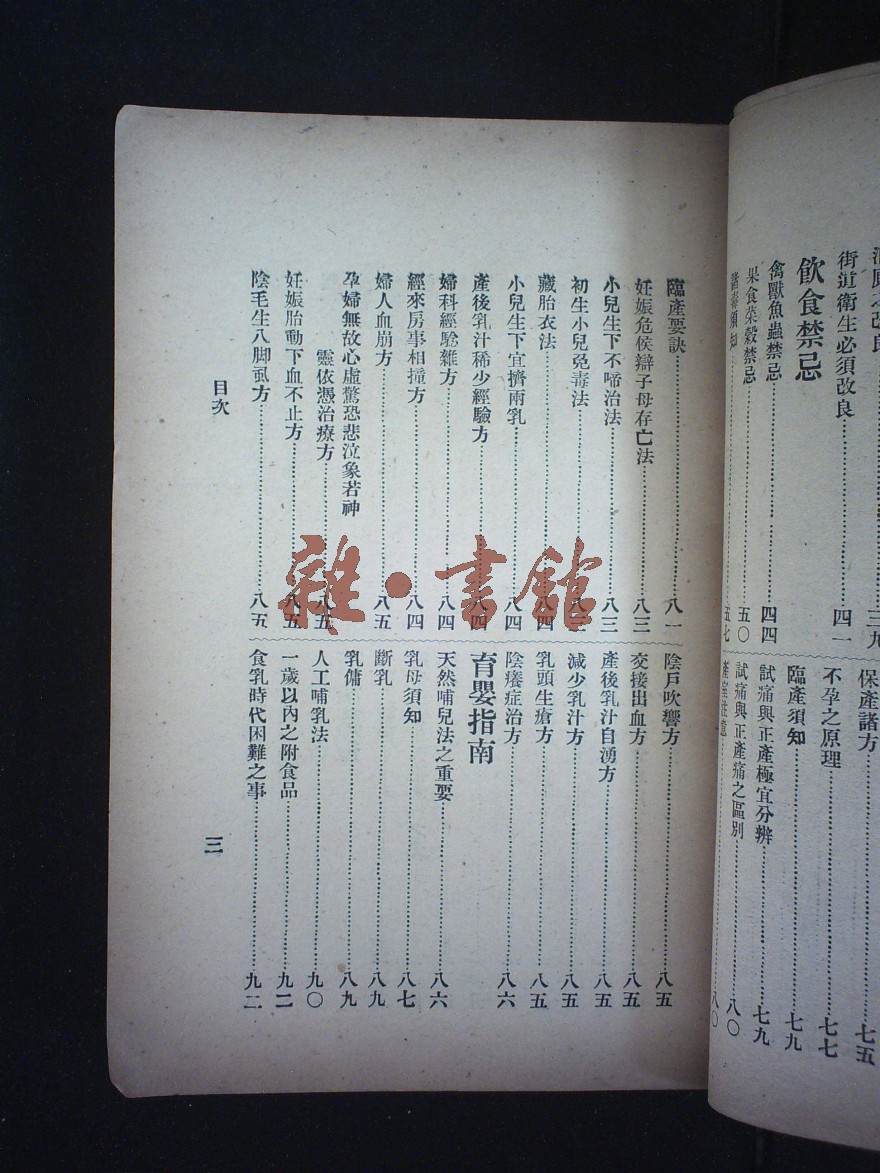 之改良……三九
街道衛生必須改良……四一
飲食禁忌
禽獸魚蟲禁忌……四四
果食菜穀禁忌……五〇
諸毒須知……五七
保產諸方……七五
不孕之原理……七七
臨產須知……七九
試痛與正產極宜分辨……七九
試痛與正產痛之區別……八〇
產室注意……八〇
臨產要訣……八一
妊娠危侯辯子母存亡法……八三
小兒生下不啼治法……八三
初生小兒免毒法……八三
藏胎衣法……八四
小兒生下宜擠兩乳……八四
產後乳汁稀少經驗方……八四
婦科經驗雜方……八四
經來房事相撞方……八四
婦人血崩方……八五
孕婦無故心虛驚恐悲泣象若神
靈依憑治療方……八五
妊娠胎動下血不止方……八五
陰毛生八脚虱方……八五
陰戶吹響方……八五
交接出血方……八五
產後乳汁自湧方……八五
減少乳汁方……八五
乳頭生瘡方……八五
陰癢症治方……八六
育嬰指南
天然哺兒法之重要……八六
乳母須知……八七
斷乳……八九
乳傭……八九
人工哺乳法……九〇
一歲以內之附食品……九二
食乳時代困難之事……九二
目次
三
雜·書館